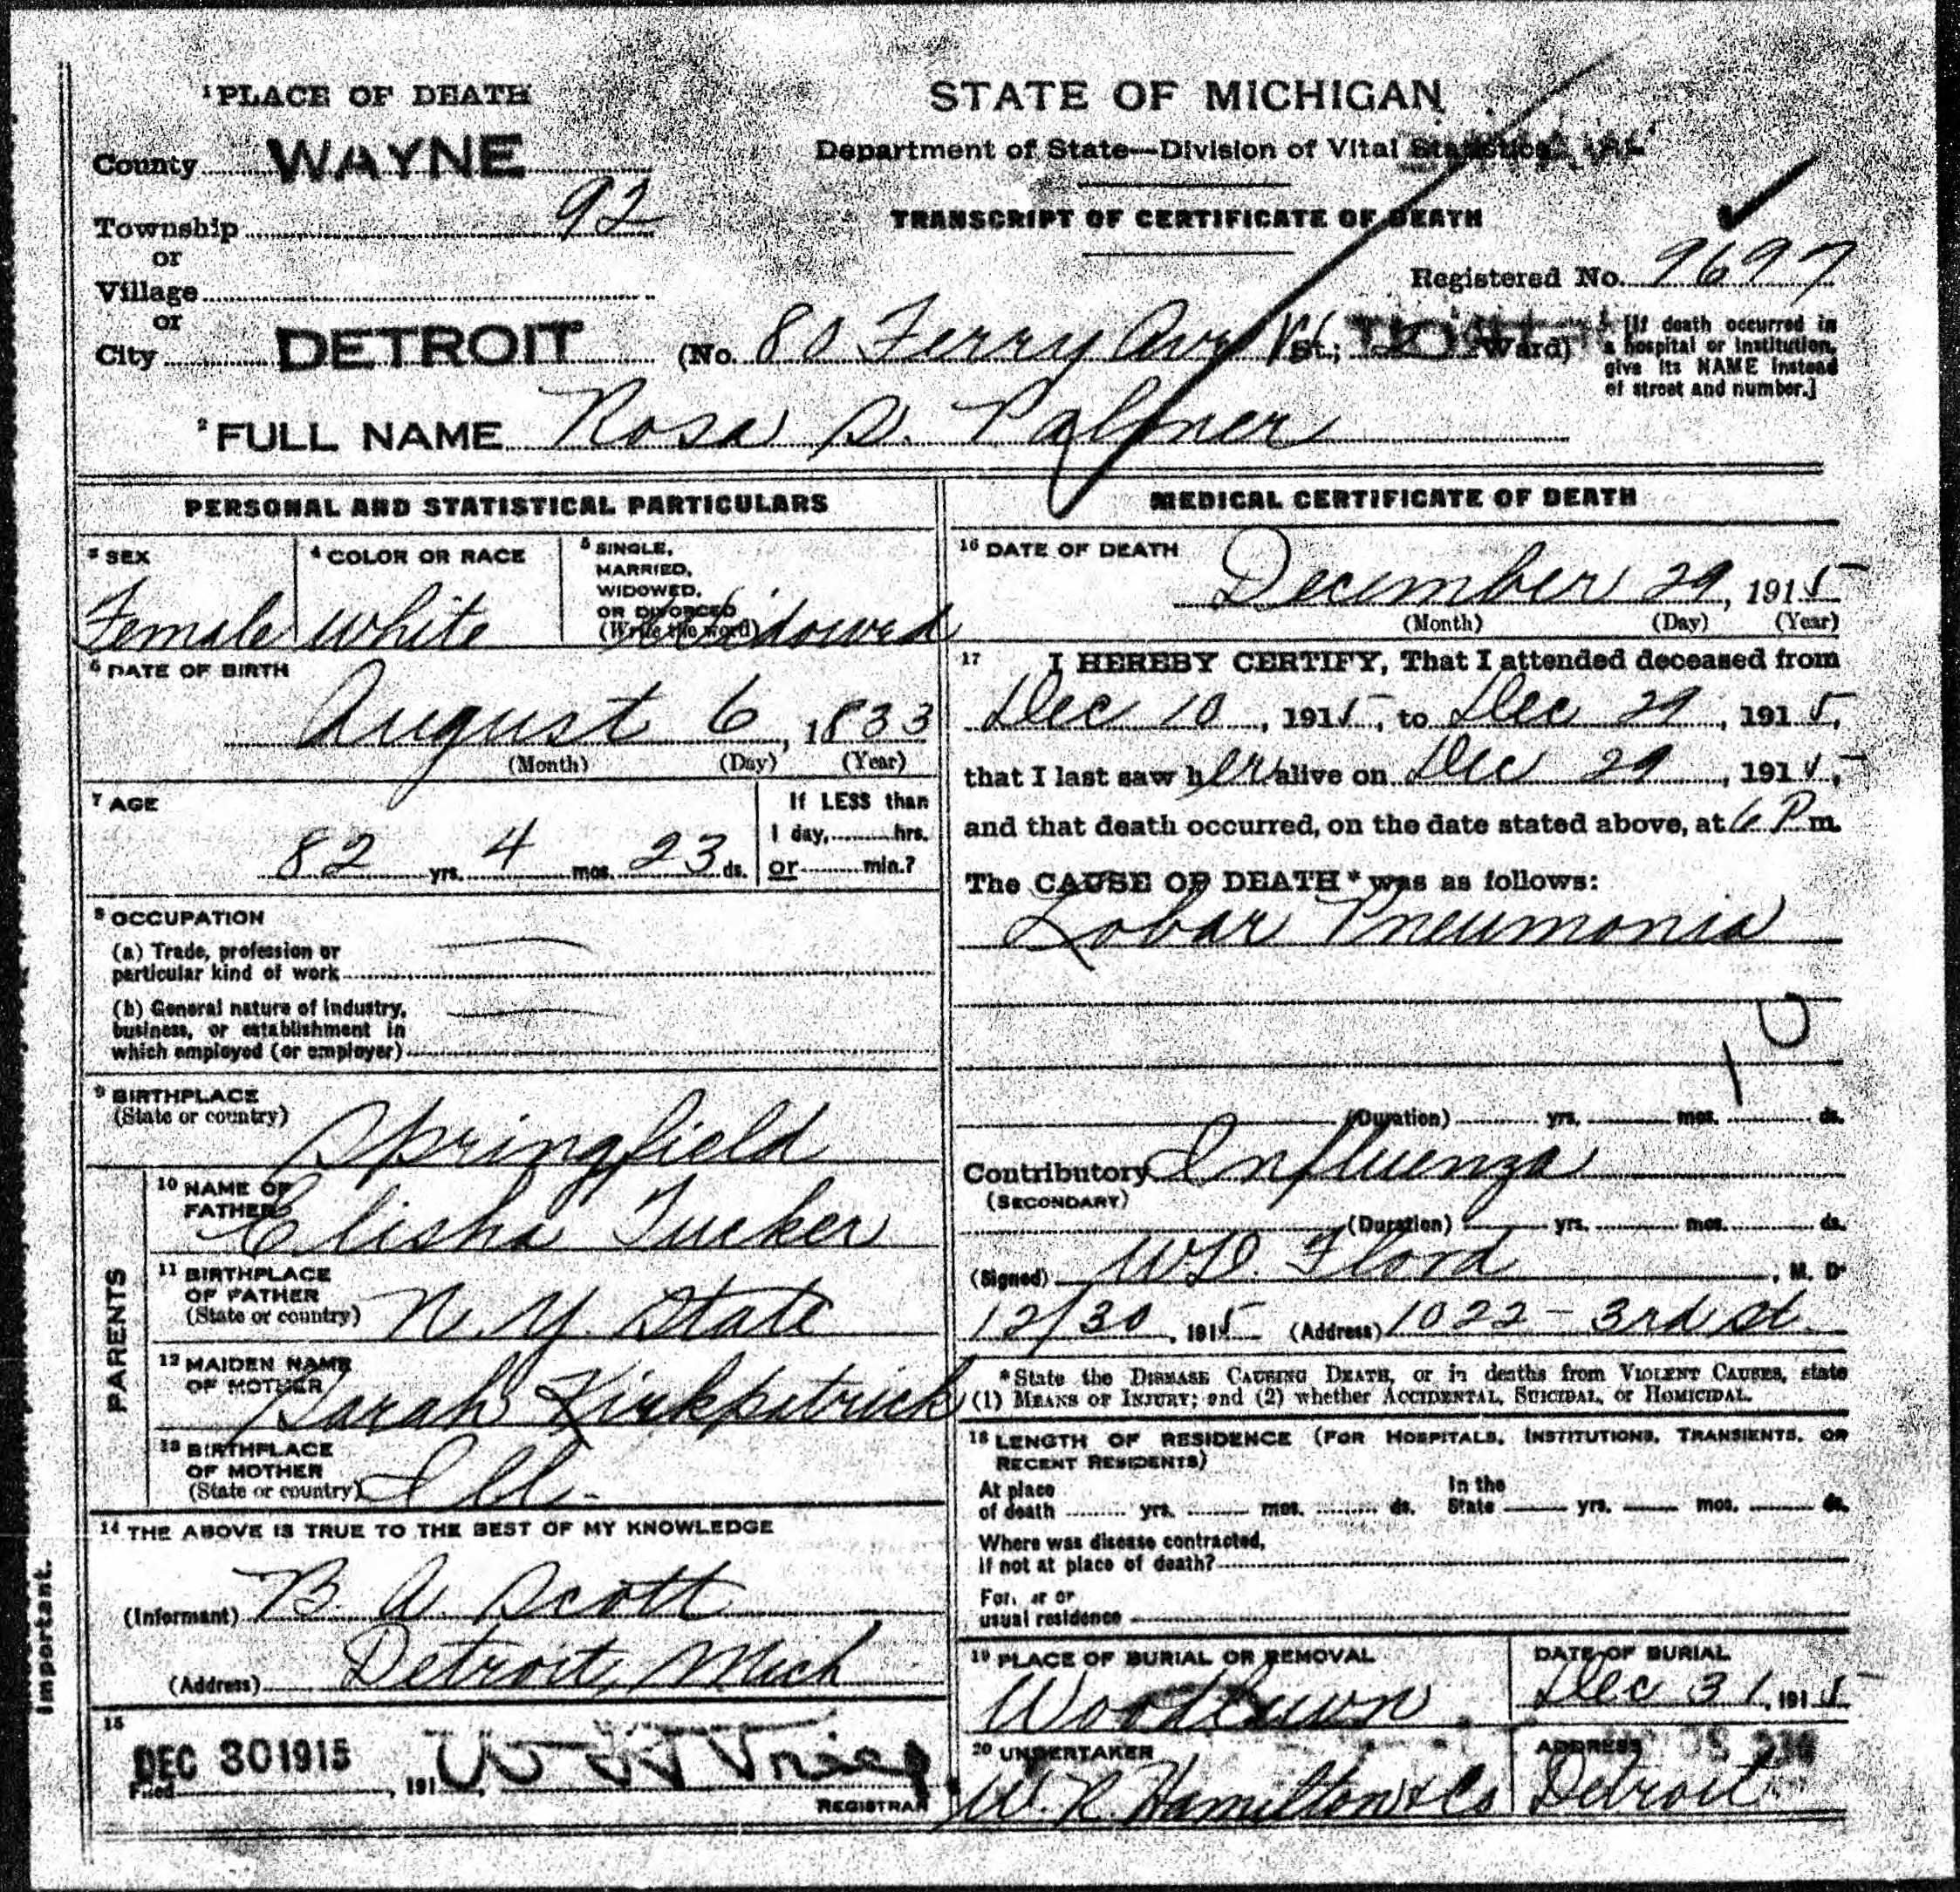 1 PLACE OF DEATH
County WAYNE
Township 92
or
Village
or
City DETROIT
STATE OF MICHIGAN
Department of State—Division of Vital Statistics
TRANSCRIPT OF CERTIFICATE OF DEATH
Registered No. 9697
(No. 80 Ferry Ave St.; Ward)
[If death occurred in
a hospital or institution,
give its NAME instead
of street and number.]
2 FULL NAME Rosa S. Palmer
PERSONAL AND STATISTICAL PARTICULARS
3 SEX
Female
4 COLOR OR RACE
White
5 SINGLE,
MARRIED,
WIDOWED,
OR DIVORCED
(Write the word) Widowed
6 DATE OF BIRTH
August 6, 1833
(Month) (Day) (Year)
7 AGE
82 yrs. 4 mos. 23 ds.
If LESS than
1 day, hrs.
or min.?
8 OCCUPATION
(a) Trade, profession or
particular kind of work
(b) General nature of industry,
business, or establishment in
which employed (or employer)
9 BIRTHPLACE
(State or country)
Springfield
PARENTS
10 NAME OF
FATHER
Elisha Tucker
11 BIRTHPLACE
OF FATHER
(State or country) N.Y. State
12 MAIDEN NAME
OF MOTHER
Sarah Kirkpatrick
13 BIRTHPLACE
OF MOTHER
(State or country) Ill.
14 THE ABOVE IS TRUE TO THE BEST OF MY KNOWLEDGE
(Informant) B. A. Scott
(Address) Detroit, Mich
15
DEC 30 1915
Filed , 191
REGISTRAR
MEDICAL CERTIFICATE OF DEATH
16 DATE OF DEATH
December 29, 1915
(Month) (Day) (Year)
17 I HEREBY CERTIFY, That I attended deceased from
Dec 10, 1915, to Dec 29, 1915,
that I last saw her alive on Dec 29, 191
and that death occurred, on the date stated above, at 6 P m.
The CAUSE OF DEATH* was as follows:
Lobar Pneumonia
10
(Duration) yrs. mos. ds.
Contributory Influenza
(SECONDARY)
(Duration) yrs. mos. ds.
(Signed) M. D.
12/30, 1915 (Address) 1022 - 3rd St.
*State the DISEASE CAUSING DEATH, or in deaths from VIOLENT CAUSES, state
(1) MEANS OF INJURY; and (2) whether ACCIDENTAL, SUICIDAL, or HOMICIDAL.
18 LENGTH OF RESIDENCE (FOR HOSPITALS, INSTITUTIONS, TRANSIENTS, OR
RECENT RESIDENTS)
At place
of death yrs. mos. ds.
In the
State yrs. mos. ds.
Where was disease contracted,
if not at place of death?
usual residence
19 PLACE OF BURIAL OR REMOVAL
Woodlawn
DATE OF BURIAL
Dec 31, 1915
20 UNDERTAKER
W. R. Hamilton & Co
ADDRESS
Detroit
Important.